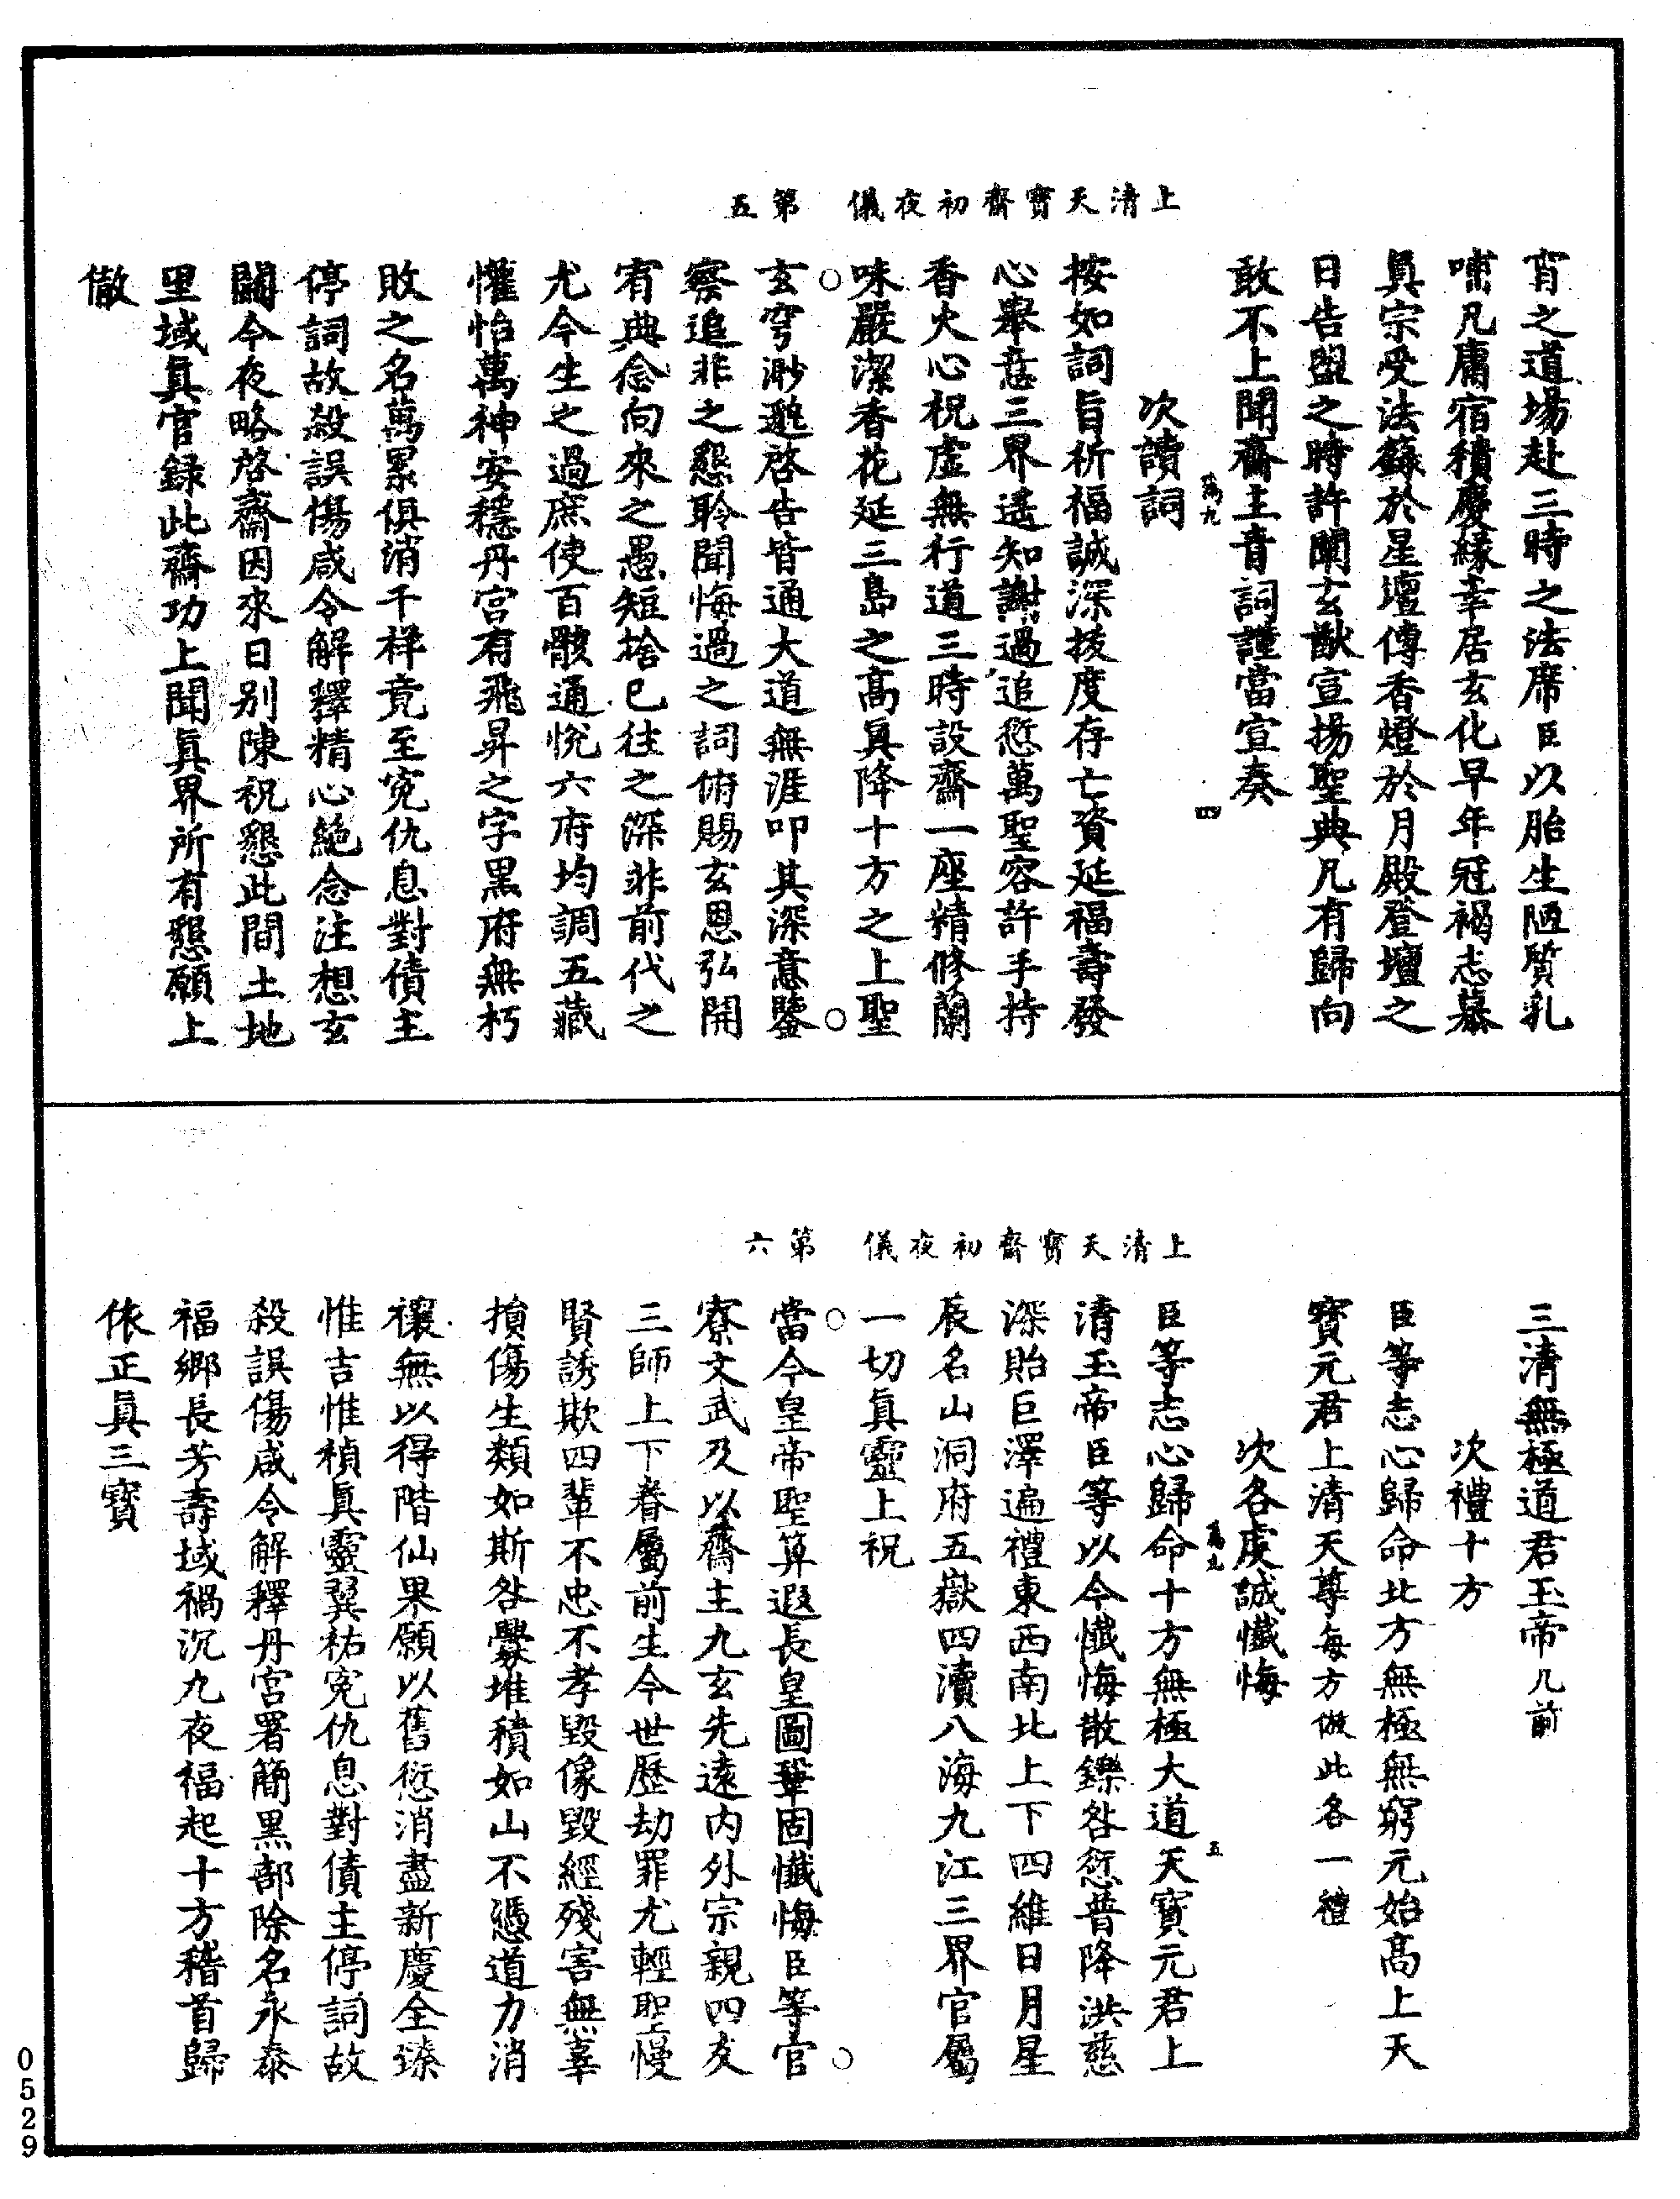 上清天寶齋初夜儀　第五
宵之道場赴三時之法席臣以胎生陋質乳
哺凡庸宿積慶緣幸居玄化早年冠褐志慕
真宗受法籙於星壇傳香燈於月殿登壇之
日告盟之時許闡玄猷宣揚聖典凡有歸向
敢不上聞齋主音詞謹當宣奏
次讀詞
四
按如詞旨祈福誠深拔度存亡資延福壽發
心舉意三界遙知謝過追愆萬聖容許手持
香火心祝虛無行道三時設齋一座精修蘭
味嚴潔香花延三島之高真降十方之上聖
玄穹渺邈啓告皆通大道無涯叩其深意鑒
察追非之懇聆聞悔過之詞俯賜玄恩弘開
宥典念向來之愚短捨已往之深非前代之
尤今生之過庶使百骸通悅六府均調五藏
懽怡萬神安穩丹宮有飛昇之字黑府無朽
敗之名萬累俱消千祥竟至冤仇息對債主
停詞故殺誤傷咸令解釋精心絕念注想玄
關今夜略啓齋因來日別陳祝懇此間土地
里域真官録此齋功上聞真界所有懇願上
徹
上清天寶齋初夜儀　第六
三清無極道君玉帝几前
次禮十方
臣等志心歸命北方無極無窮元始高上天
寶元君上清天尊每方倣此各一禮
次各虔誠懺悔
五
臣等志心歸命十方無極大道天寶元君上
清玉帝臣等以今懺悔散鑠咎愆普降洪慈
深貽巨澤遍禮東西南北上下四維日月星
辰名山洞府五嶽四瀆八海九江三界官屬
一切真靈上祝
當今皇帝聖算遐長皇圖鞏固懺悔臣等官
寮文武及以齋主九玄先遠內外宗親四友
三師上下眷屬前生今世歷劫罪尤輕聖慢
賢誘欺四輩不忠不孝毀像毀經殘害無辜
損傷生類如斯咎舋堆積如山不憑道力消
禳無以得階仙果願以舊愆消盡新慶全臻
惟吉惟禎真靈翼祐冤仇息對債主停詞故
殺誤傷咸令解釋丹宮署簡黑部除名永泰
福鄉長芳壽域禍沉九夜福起十方稽首歸
依正真三寶
0529